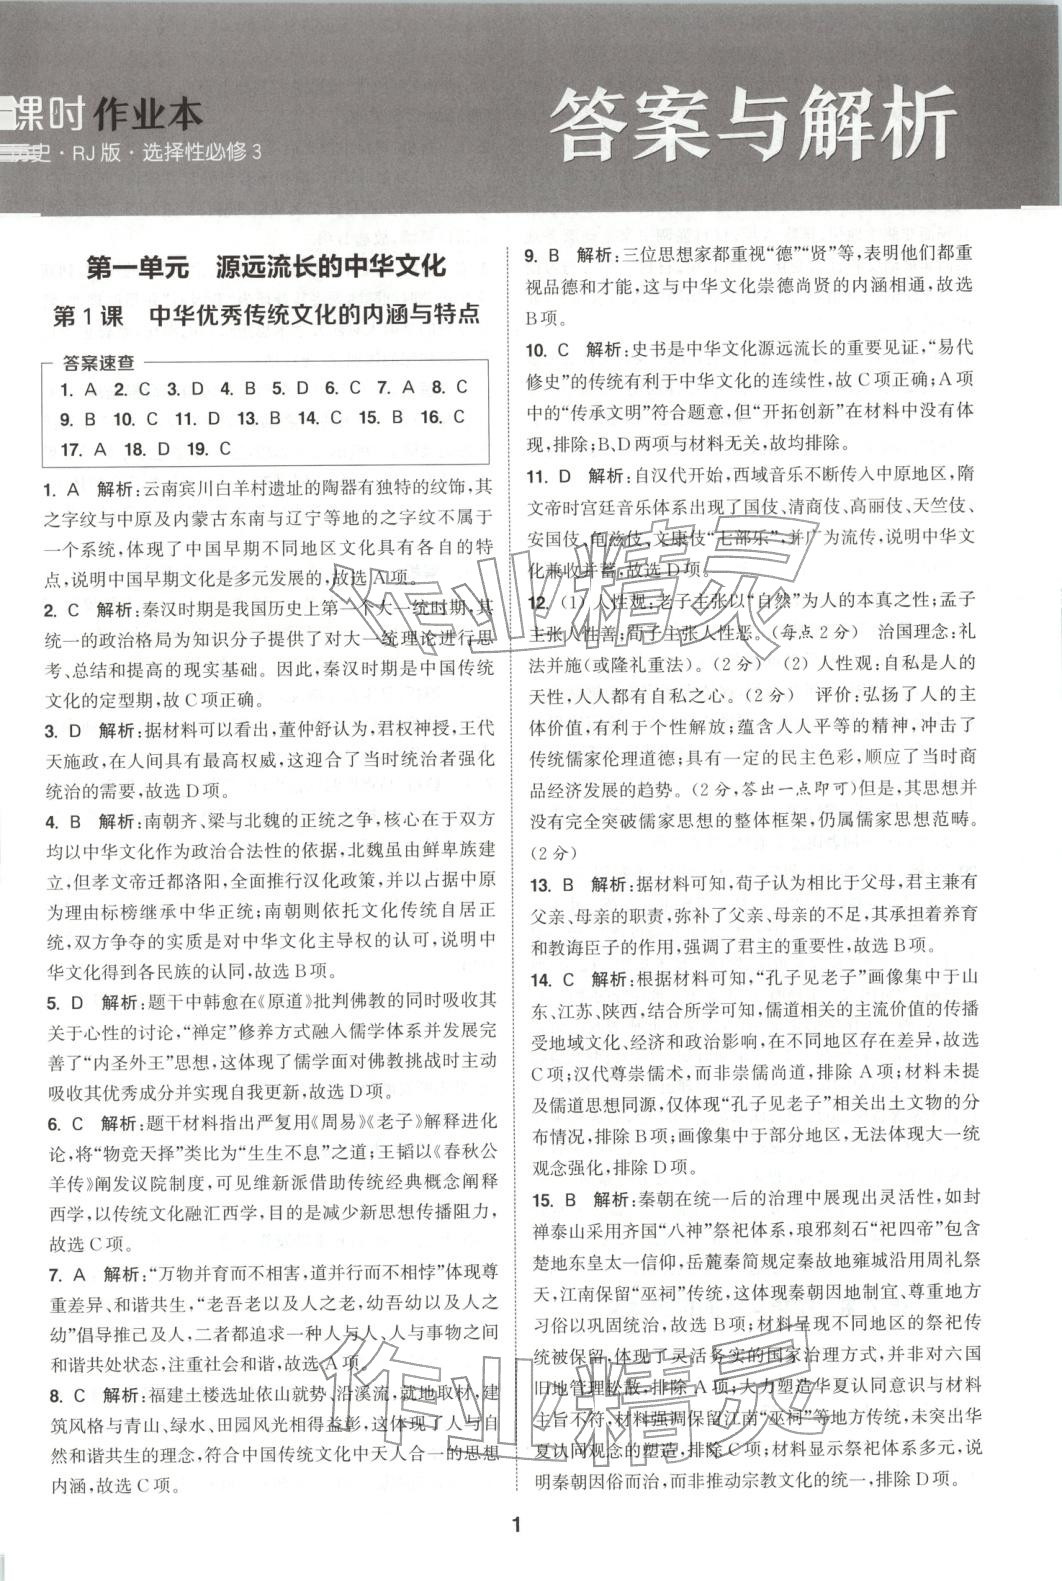 课时 作业本
历史·RJ版·选择性必修3
答案与解析
第一单元 源远流长的中华文化
第1课 中华优秀传统文化的内涵与特点
答案速查
1. A 2. C 3. D 4. B 5. D 6. C 7. A 8. C
9. B 10. C 11. D 13. B 14. C 15. B 16. C
17. A 18. D 19. C
1. A 解析:云南宾川白羊村遗址的陶器有独特的纹饰,其
之字纹与中原及内蒙古东南与辽宁等地的之字纹不属于
一个系统,体现了中国早期不同地区文化具有各自的特
点,说明中国早期文化是多元发展的,故选A项。
2. C 解析:秦汉时期是我国历史上第一个大一统时期,其
统一的政治格局为知识分子提供了对大一统理论进行思
考、总结和提高的现实基础。因此,秦汉时期是中国传统
文化的定型期,故C项正确。
3. D 解析:据材料可以看出,董仲舒认为,君权神授,王代
天施政,在人间具有最高权威,这迎合了当时统治者强化
统治的需要,故选D项。
4. B 解析:南朝齐、梁与北魏的正统之争,核心在于双方
均以中华文化作为政治合法性的依据,北魏虽由鲜卑族建
立,但孝文帝迁都洛阳,全面推行汉化政策,并以占据中原
为理由标榜继承中华正统;南朝则依托文化传统自居正
统,双方争夺的实质是对中华文化主导权的认可,说明中
华文化得到各民族的认同,故选B项。
5. D 解析:题干中韩愈在《原道》批判佛教的同时吸收其
关于心性的讨论,“禅定”修养方式融入儒学体系并发展完
善了“内圣外王”思想,这体现了儒学面对佛教挑战时主动
吸收其优秀成分并实现自我更新,故选D项。
6. C 解析:题干材料指出严复用《周易》《老子》解释进化
论,将“物竞天择”类比为“生生不息”之道;王韬以《春秋公
羊传》阐发议院制度,可见维新派借助传统经典概念阐释
西学,以传统文化融汇西学,目的是减少新思想传播阻力,
故选C项。
7. A 解析:“万物并育而不相害,道并行而不相悖”体现尊
重差异、和谐共生,“老吾老以及人之老,幼吾幼以及人之
幼”倡导推己及人,二者都追求一种人与人、人与事物之间
和谐共处状态,注重社会和谐,故选A项。
8. C 解析:福建土楼选址依山就势、沿溪流,就地取材,建
筑风格与青山、绿水、田园风光相得益彰,这体现了人与自
然和谐共生的理念,符合中国传统文化中天人合一的思想
内涵,故选C项。
9. B 解析:三位思想家都重视“德”“贤”等,表明他们都重
视品德和才能,这与中华文化崇德尚贤的内涵相通,故选
B项。
10. C 解析:史书是中华文化源远流长的重要见证,“易代
修史”的传统有利于中华文化的连续性,故C项正确;A项
中的“传承文明”符合题意,但“开拓创新”在材料中没有体
现,排除;B、D两项与材料无关,故均排除。
11. D 解析:自汉代开始,西域音乐不断传入中原地区,隋
文帝时宫廷音乐体系出现了国伎、清商伎、高丽伎、天竺伎、
安国伎、龟兹伎、文康伎“七部乐”,并广为流传,说明中华文
化兼收并蓄,故选D项。
12. (1) 人性观:老子主张以“自然”为人的本真之性;孟子
主张人性善;荀子主张人性恶。(每点2分) 治国理念:礼
法并施(或隆礼重法)。(2分) (2) 人性观:自私是人的
天性,人人都有自私之心。(2分) 评价:弘扬了人的主
体价值,有利于个性解放;蕴含人人平等的精神,冲击了
传统儒家伦理道德;具有一定的民主色彩,顺应了当时商
品经济发展的趋势。(2分,答出一点即可)但是,其思想并
没有完全突破儒家思想的整体框架,仍属儒家思想范畴。
(2分)
13. B 解析:据材料可知,荀子认为相比于父母,君主兼有
父亲、母亲的职责,弥补了父亲、母亲的不足,其承担着养育
和教诲臣子的作用,强调了君主的重要性,故选B项。
14. C 解析:根据材料可知,“孔子见老子”画像集中于山
东、江苏、陕西,结合所学可知,儒道相关的主流价值的传播
受地域文化、经济和政治影响,在不同地区存在差异,故选
C项;汉代尊崇儒术,而非崇儒尚道,排除A项;材料未提
及儒道思想同源,仅体现“孔子见老子”相关出土文物的分
布情况,排除B项;画像集中于部分地区,无法体现大一统
观念强化,排除D项。
15. B 解析:秦朝在统一后的治理中展现出灵活性,如封
禅泰山采用齐国“八神”祭祀体系,琅邪刻石“祀四帝”包含
楚地东皇太一信仰,岳麓秦简规定秦故地雍城沿用周礼祭
天,江南保留“巫祠”传统,这体现秦朝因地制宜、尊重地方
习俗以巩固统治,故选B项;材料呈现不同地区的祭祀传
统被保留,体现了灵活务实的国家治理方式,并非对六国
旧地管理松散,排除A项;大力塑造华夏认同意识与材料
主旨不符,材料强调保留江南“巫祠”等地方传统,未突出华
夏认同观念的塑造,排除C项;材料显示祭祀体系多元,说
明秦朝因俗而治,而非推动宗教文化的统一,排除D项。
作业精灵
作业精灵
1